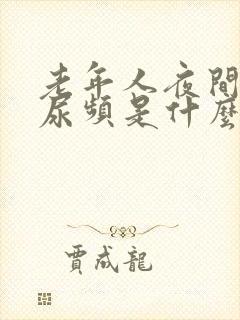 老年人夜間
尿頻是什麼
賈成龍